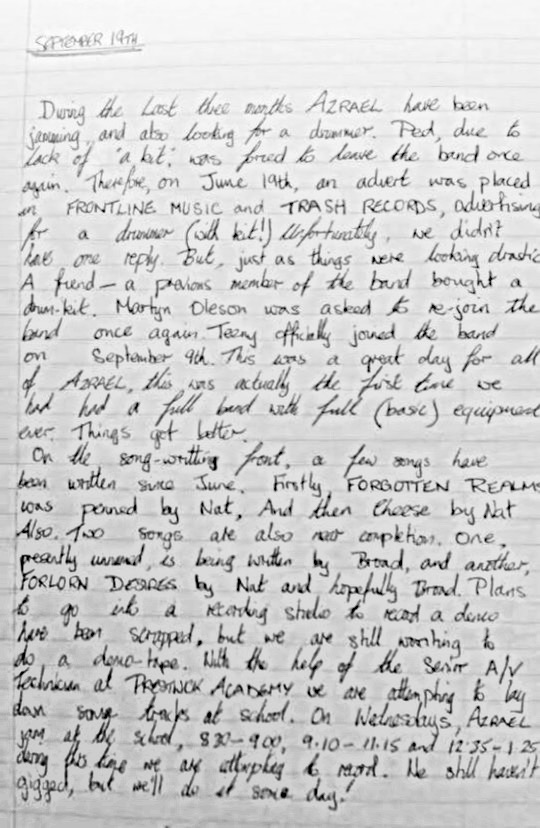 SEPTEMBER 19TH
During the last three months AZRAEL have been
jamming and also looking for a drummer. Ped, due to
lack of "a kit", was forced to leave the band once
again. Therefore, on June 19th, an advert was placed
in FRONTLINE MUSIC and TRASH RECORDS, advertising
for a drummer (with kit!) Unfortunately, we didn't
have one reply. But, just as things were looking drastic
A friend - a previous member of the band bought a
drum-kit. Martyn Oleson was asked to re-join the
band once again. Teeny officially joined the band
on September 9th. This was a great day for all
of AZRAEL, this was actually the first time we
had had a full band with full (basic) equipment
ever. Things got better.
On the song-writting front, a few songs have
been written since June. Firstly FORGOTTEN REALMS
was penned by Nat, And then Cheese by Nat
Also. Two songs are also near completion. One,
presently unnamed, is being written by Broad, and another,
FORLORN DESIRES by Nat and hopefully Broad. Plans
to go into a recording studio to record a demo
have been scrapped, but we are still working to
do a demo-tape. With the help of the Senior A/V
Technician at PRESTWICK ACADEMY we are attempting to lay
down some tracks at school. On Wednesdays, AZRAEL
jam at the school, 8.30-9.00, 9.10-11.15 and 12.35-1.25
during this time we are attempting to record. We still haven't
gigged, but we'll do it some day!